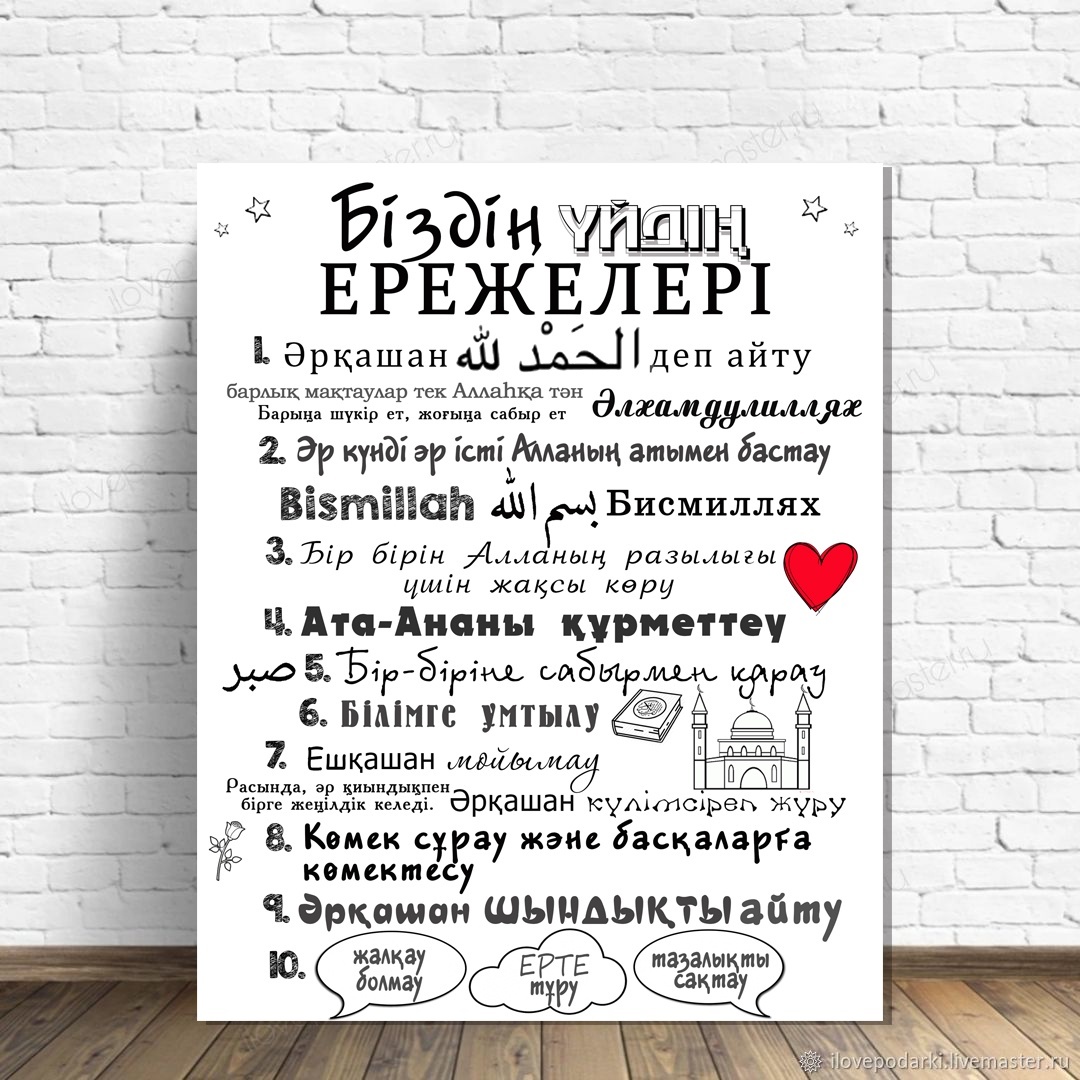 Біздің үйдің
ЕРЕЖЕЛЕРІ
1. Әрқашан الحَمْد لله деп айту
барлық мақтаулар тек Аллаһқа тән
Барыңа шүкір ет, жоғыңа сабыр ет
Әлхамдулиллях
2. Әр күнді әр істі Алланың атымен бастау
Bismillah بسم الله Бисмиллях
3. Бір бірін Алланың разылығы
үшін жақсы көру
4. Ата-Ананы құрметтеу
صبر 5. Бір-біріне сабырмен қарау
6. Білімге ұмтылу
7. Ешқашан мойымау
Расында, әр қиындықпен
бірге жеңілдік келеді.
Әрқашан күлімсіреп жүру
8. Көмек сұрау және басқаларға
көмектесу
9. Әрқашан шындықты айту
10. жалқау
болмау
ЕРТЕ
тұру
тазалықты
сақтау
ilovepodarki.livemaster.ru